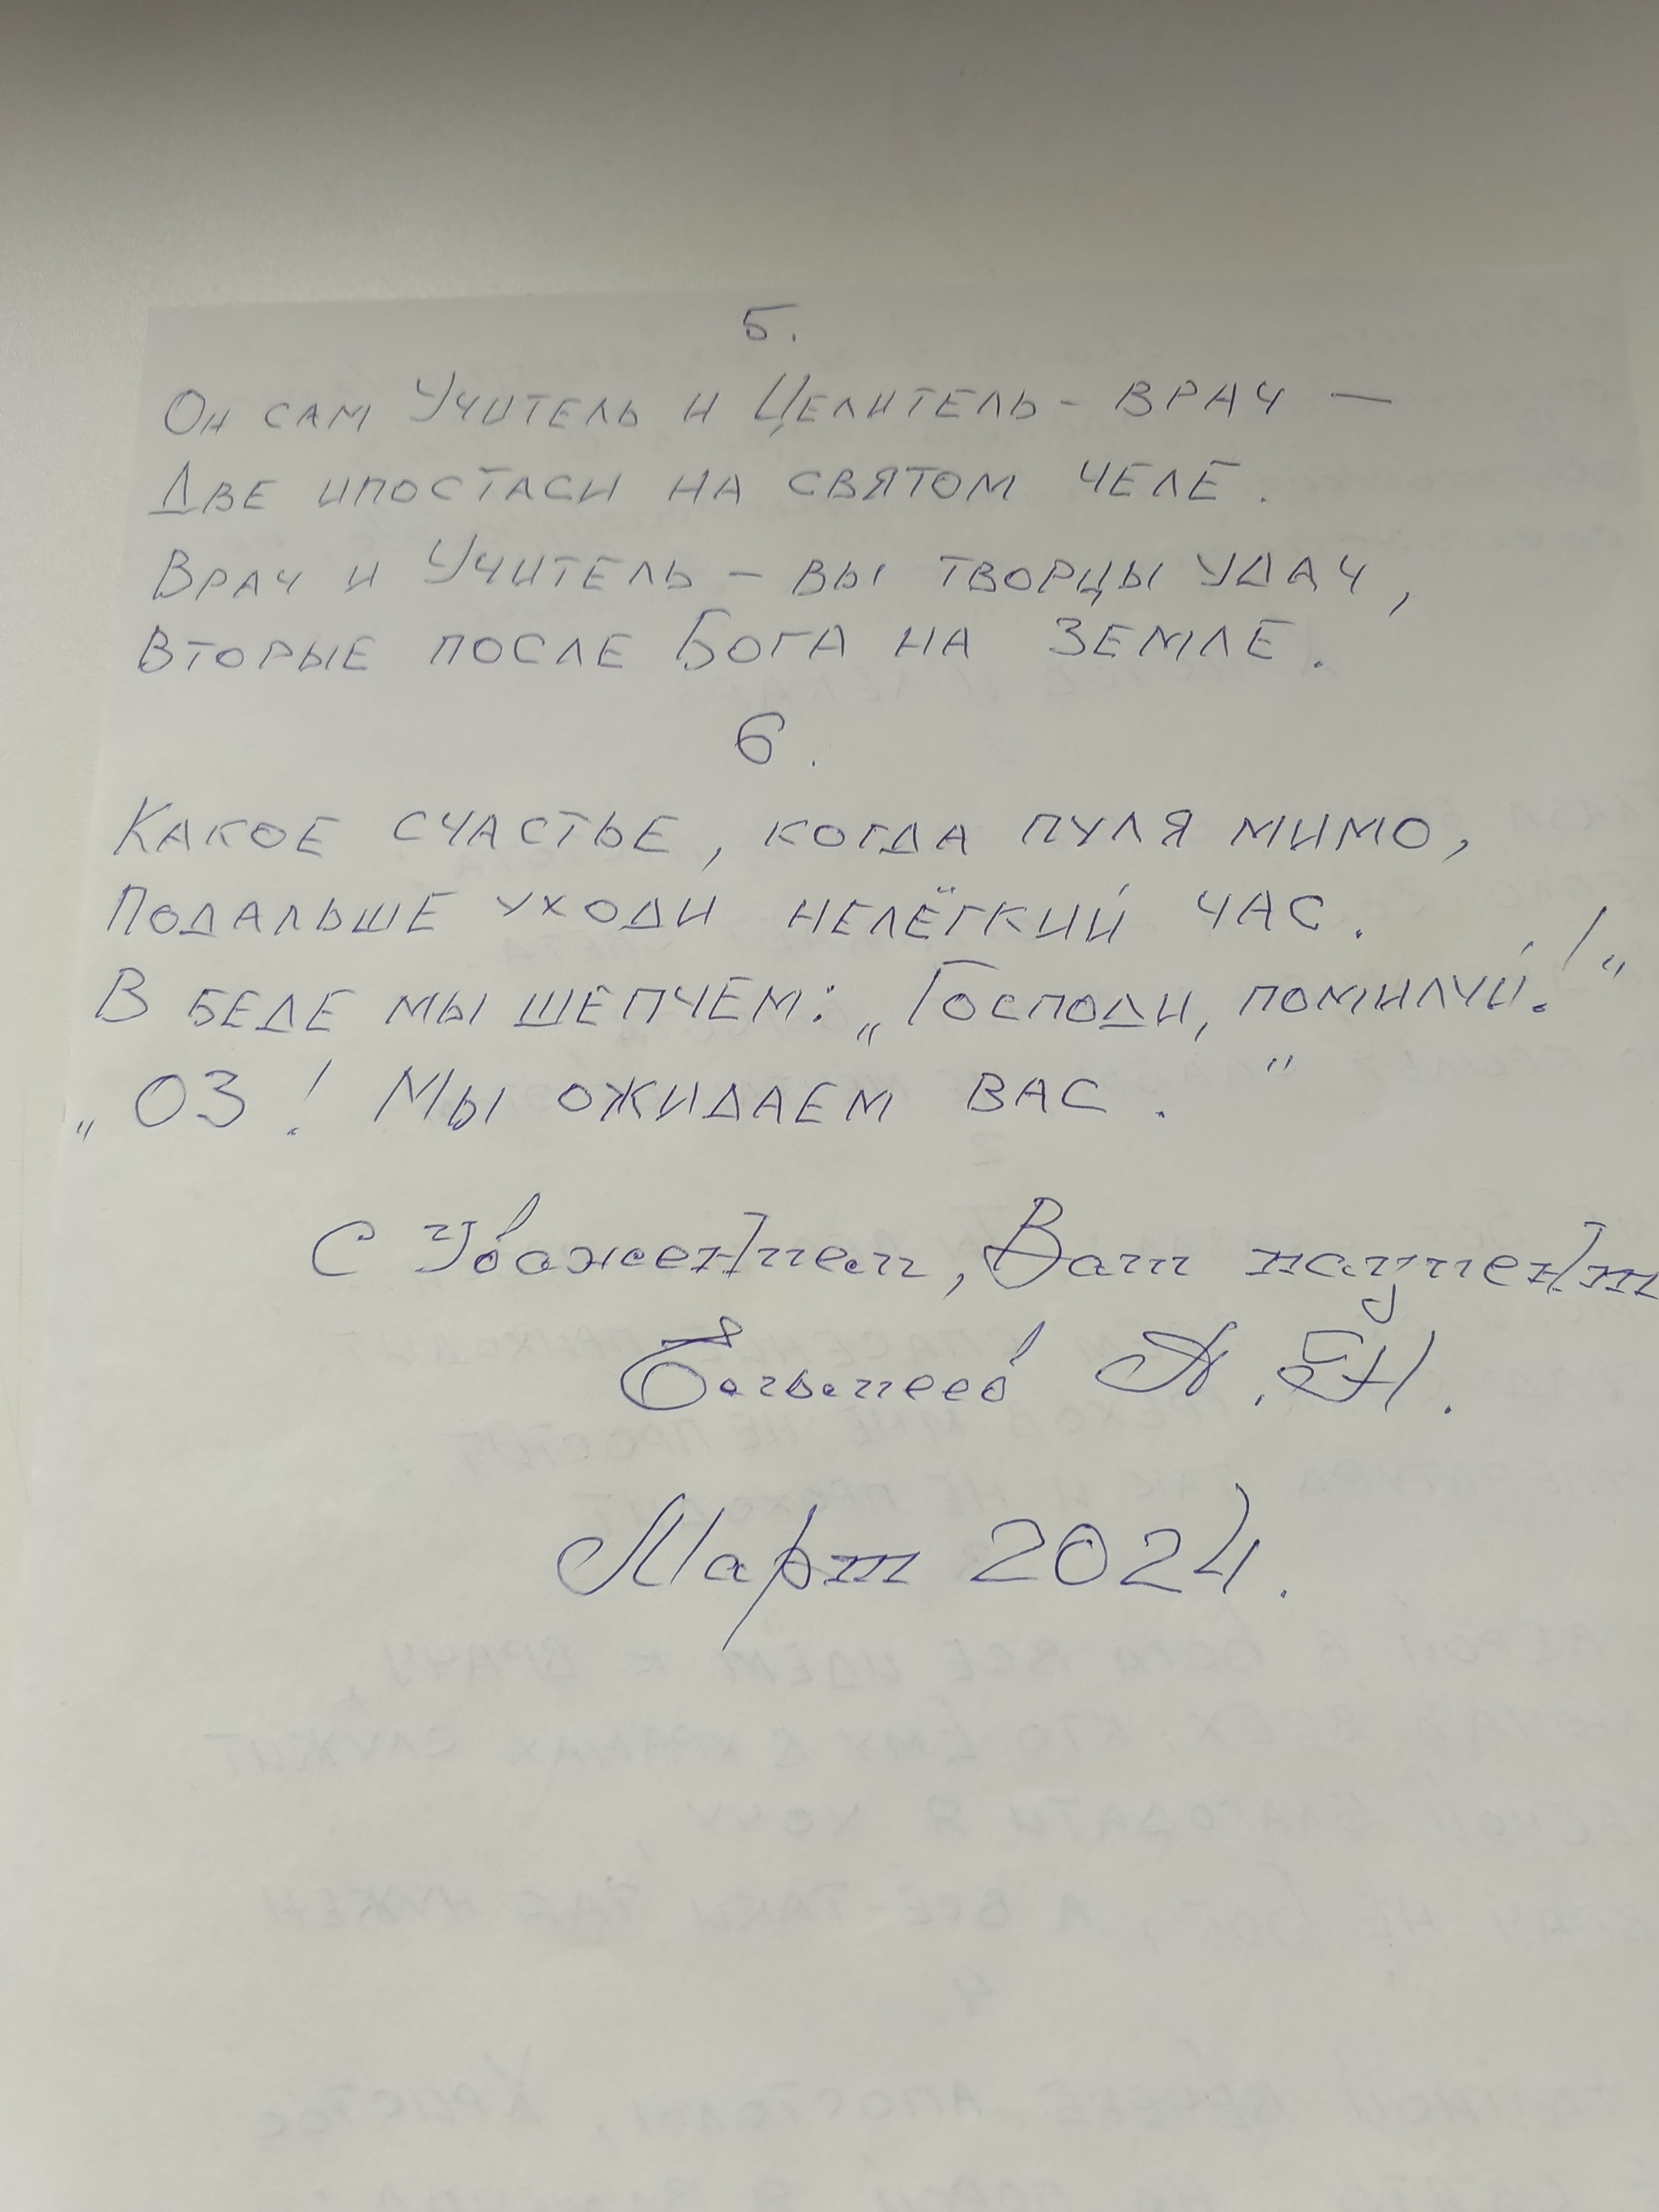 5.
Он сам Учитель и Целитель - врач —
Две ипостаси на святом челе.
Врач и Учитель — вы творцы удач,
Вторые после Бога на земле.
6.
Какое счастье, когда пуля мимо,
Подальше уходи нелёгкий час.
В беде мы шепчем: „Господи, помилуй!“
„03! Мы ожидаем вас.“
С Уважением, Ваш пациент
Март 2024.